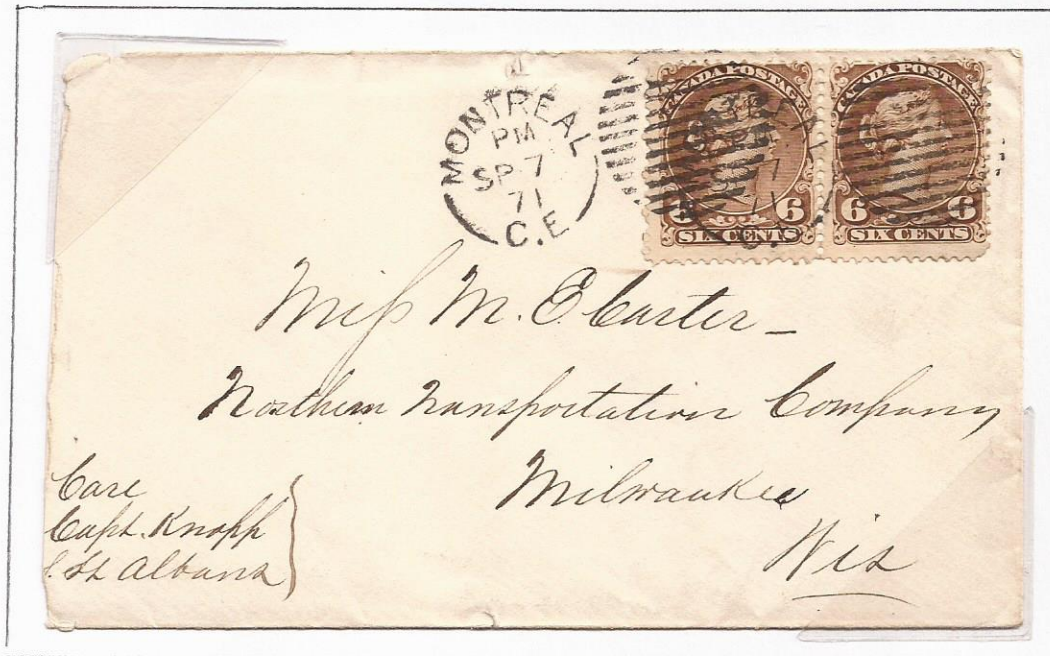 MONTREAL
PM
SP 7
71
C.E
CANADA POSTAGE
6 6
SIX CENTS
CANADA POSTAGE
6 6
SIX CENTS
Miss M. E. Carter -
Northern Transportation Company
Milwaukee
Wis
Care
Capt. Knapp
St Albans